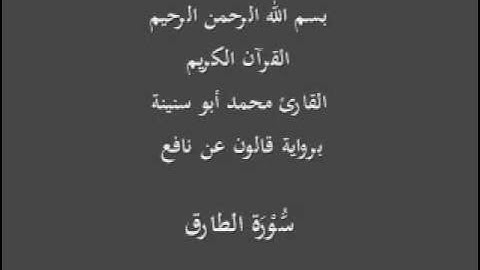 بسم الله الرحمن الرحيم
القرآن الكريم
القارئ محمد أبو سنينة
برواية قالون عن نافع
سُّوْرَة الطارق